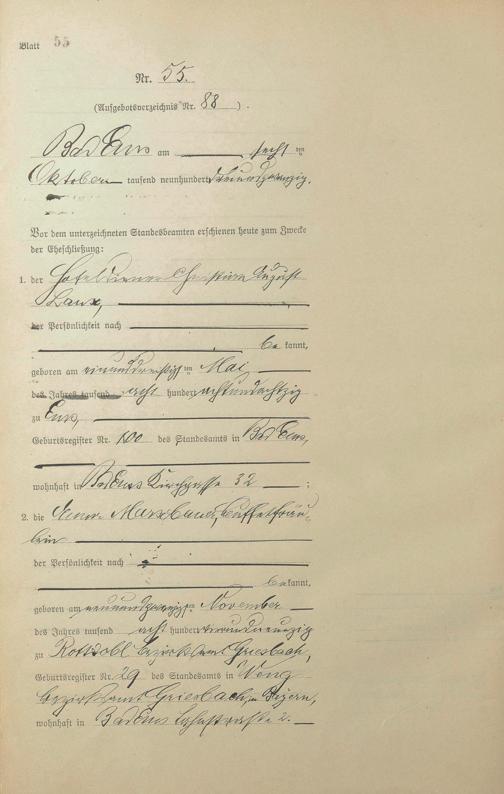 Blatt 55
Nr. 55.
(Aufgebotsverzeichnis Nr. 88 ).
Bad Ems am sechs ten
Oktober tausend neunhundert
Vor dem unterzeichneten Standesbeamten erschienen heute zum Zwecke
der Eheschließung:
1. der Hoteldiener Christian August
der Persönlichkeit nach
be kannt,
geboren am einunddreißig ten Mai
des Jahres tausend acht hundert achtundachtzig
zu Ems,
Geburtsregister Nr. 100 des Standesamts in Bad Ems,
wohnhaft in Bad Ems Kirchgasse 32 ;
2. die Anna Buffetfräu-
lein
der Persönlichkeit nach
be kannt,
geboren am neunundzwanzig ten November
des Jahres tausend acht hundert
zu Bezirksamt Griesbach,
Geburtsregister Nr. 29 des Standesamts in Weng
Bezirksamt Griesbach in Bayern,
wohnhaft in Bad Ems Lahnstraße 2.